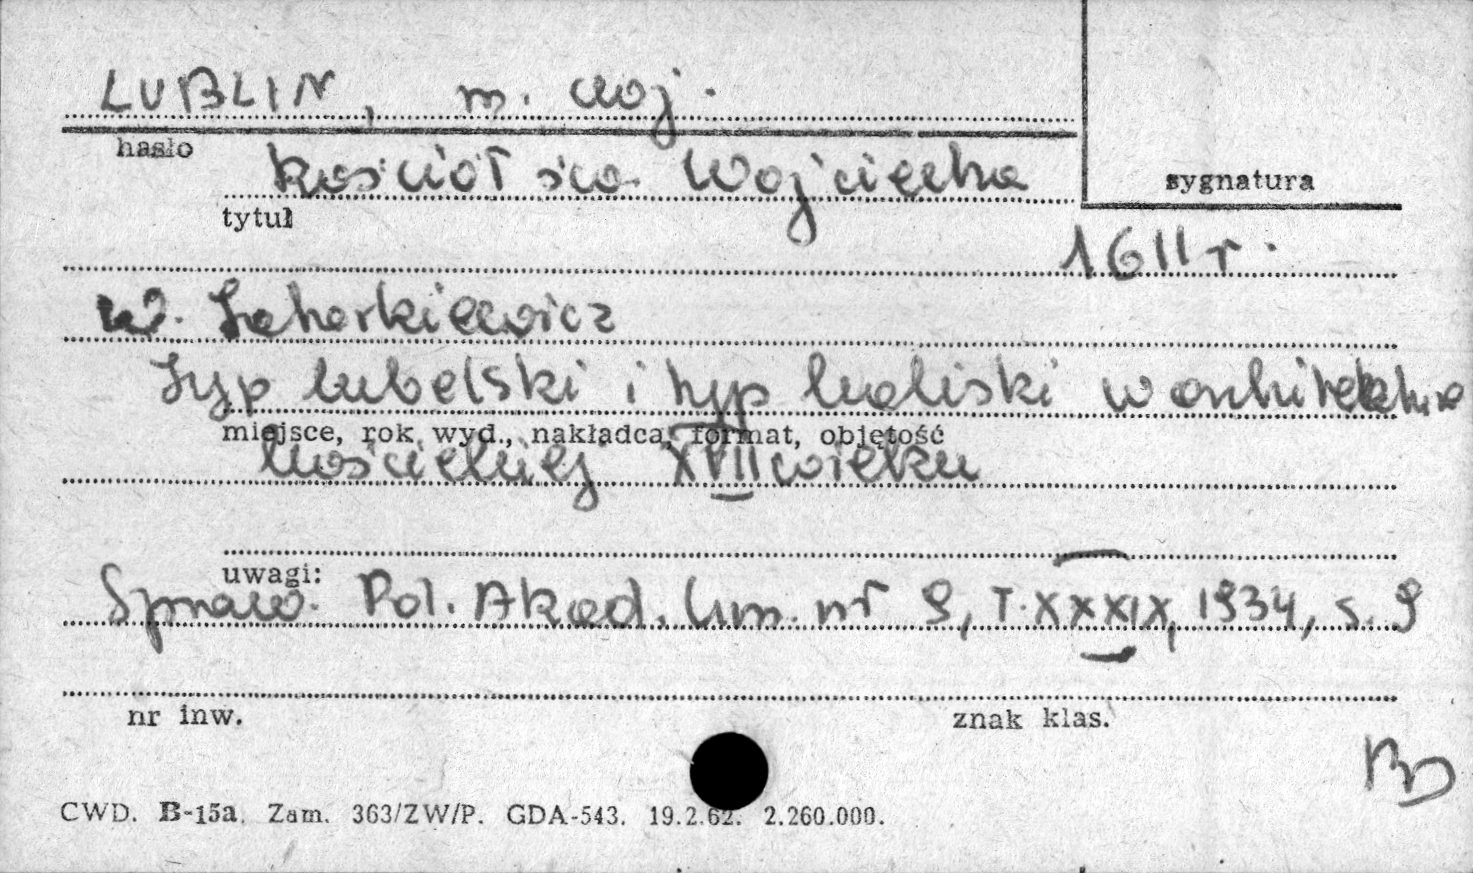 LUBLIN, m. woj.
hasło
Kościół św. Wojciecha
sygnatura
tytuł
1611 r.
W. Zaharkiewicz
Typ lubelski i typ kaliski w architekturze
miejsce, rok wyd., nakładca, format, objętość
kościelnej XVII wieku
uwagi:
Spraw. Pol. Akad. Um. nr 9, T. XXXIX, 1934, s. 9
nr inw.
znak klas.
CWD. B-15a. Zam. 363/ZW/P. GDA-543. 19.2.62. 2.260.000.